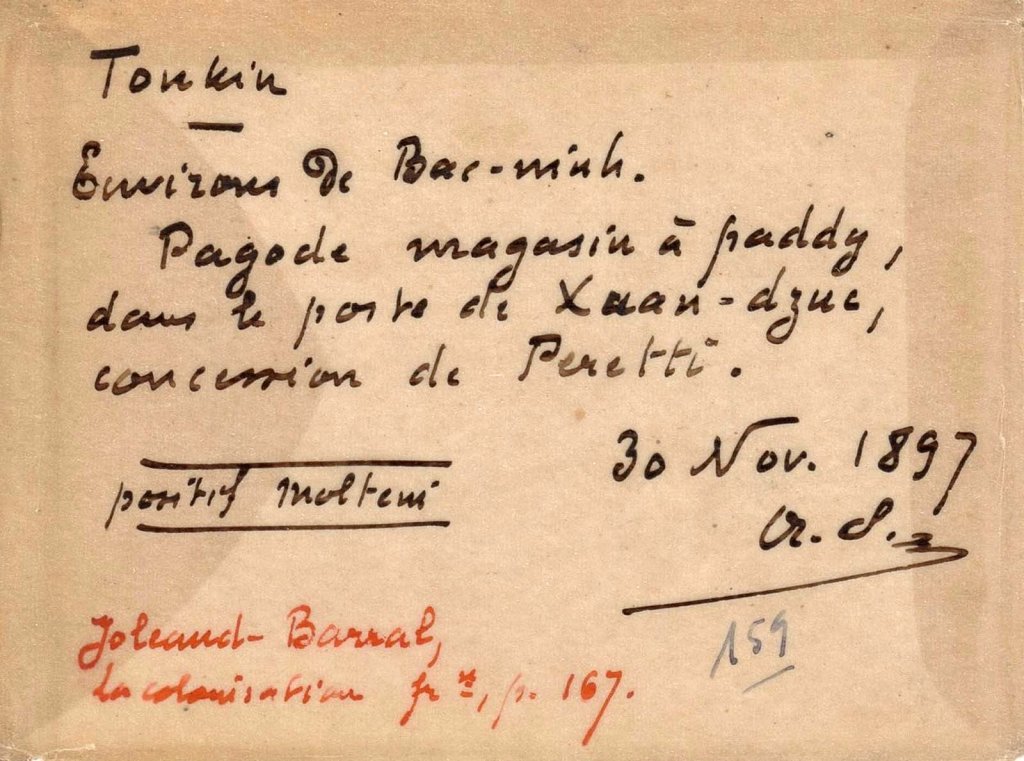 Tonkin
Environs de Bac-ninh.
Pagode magasin à paddy,
dans le poste de Xuan-dzuc,
concession de Peretti.
30 Nov. 1897
positif Molteni
A. S.
Joleaud-Barral,
La colonisation frse, p. 167.
159